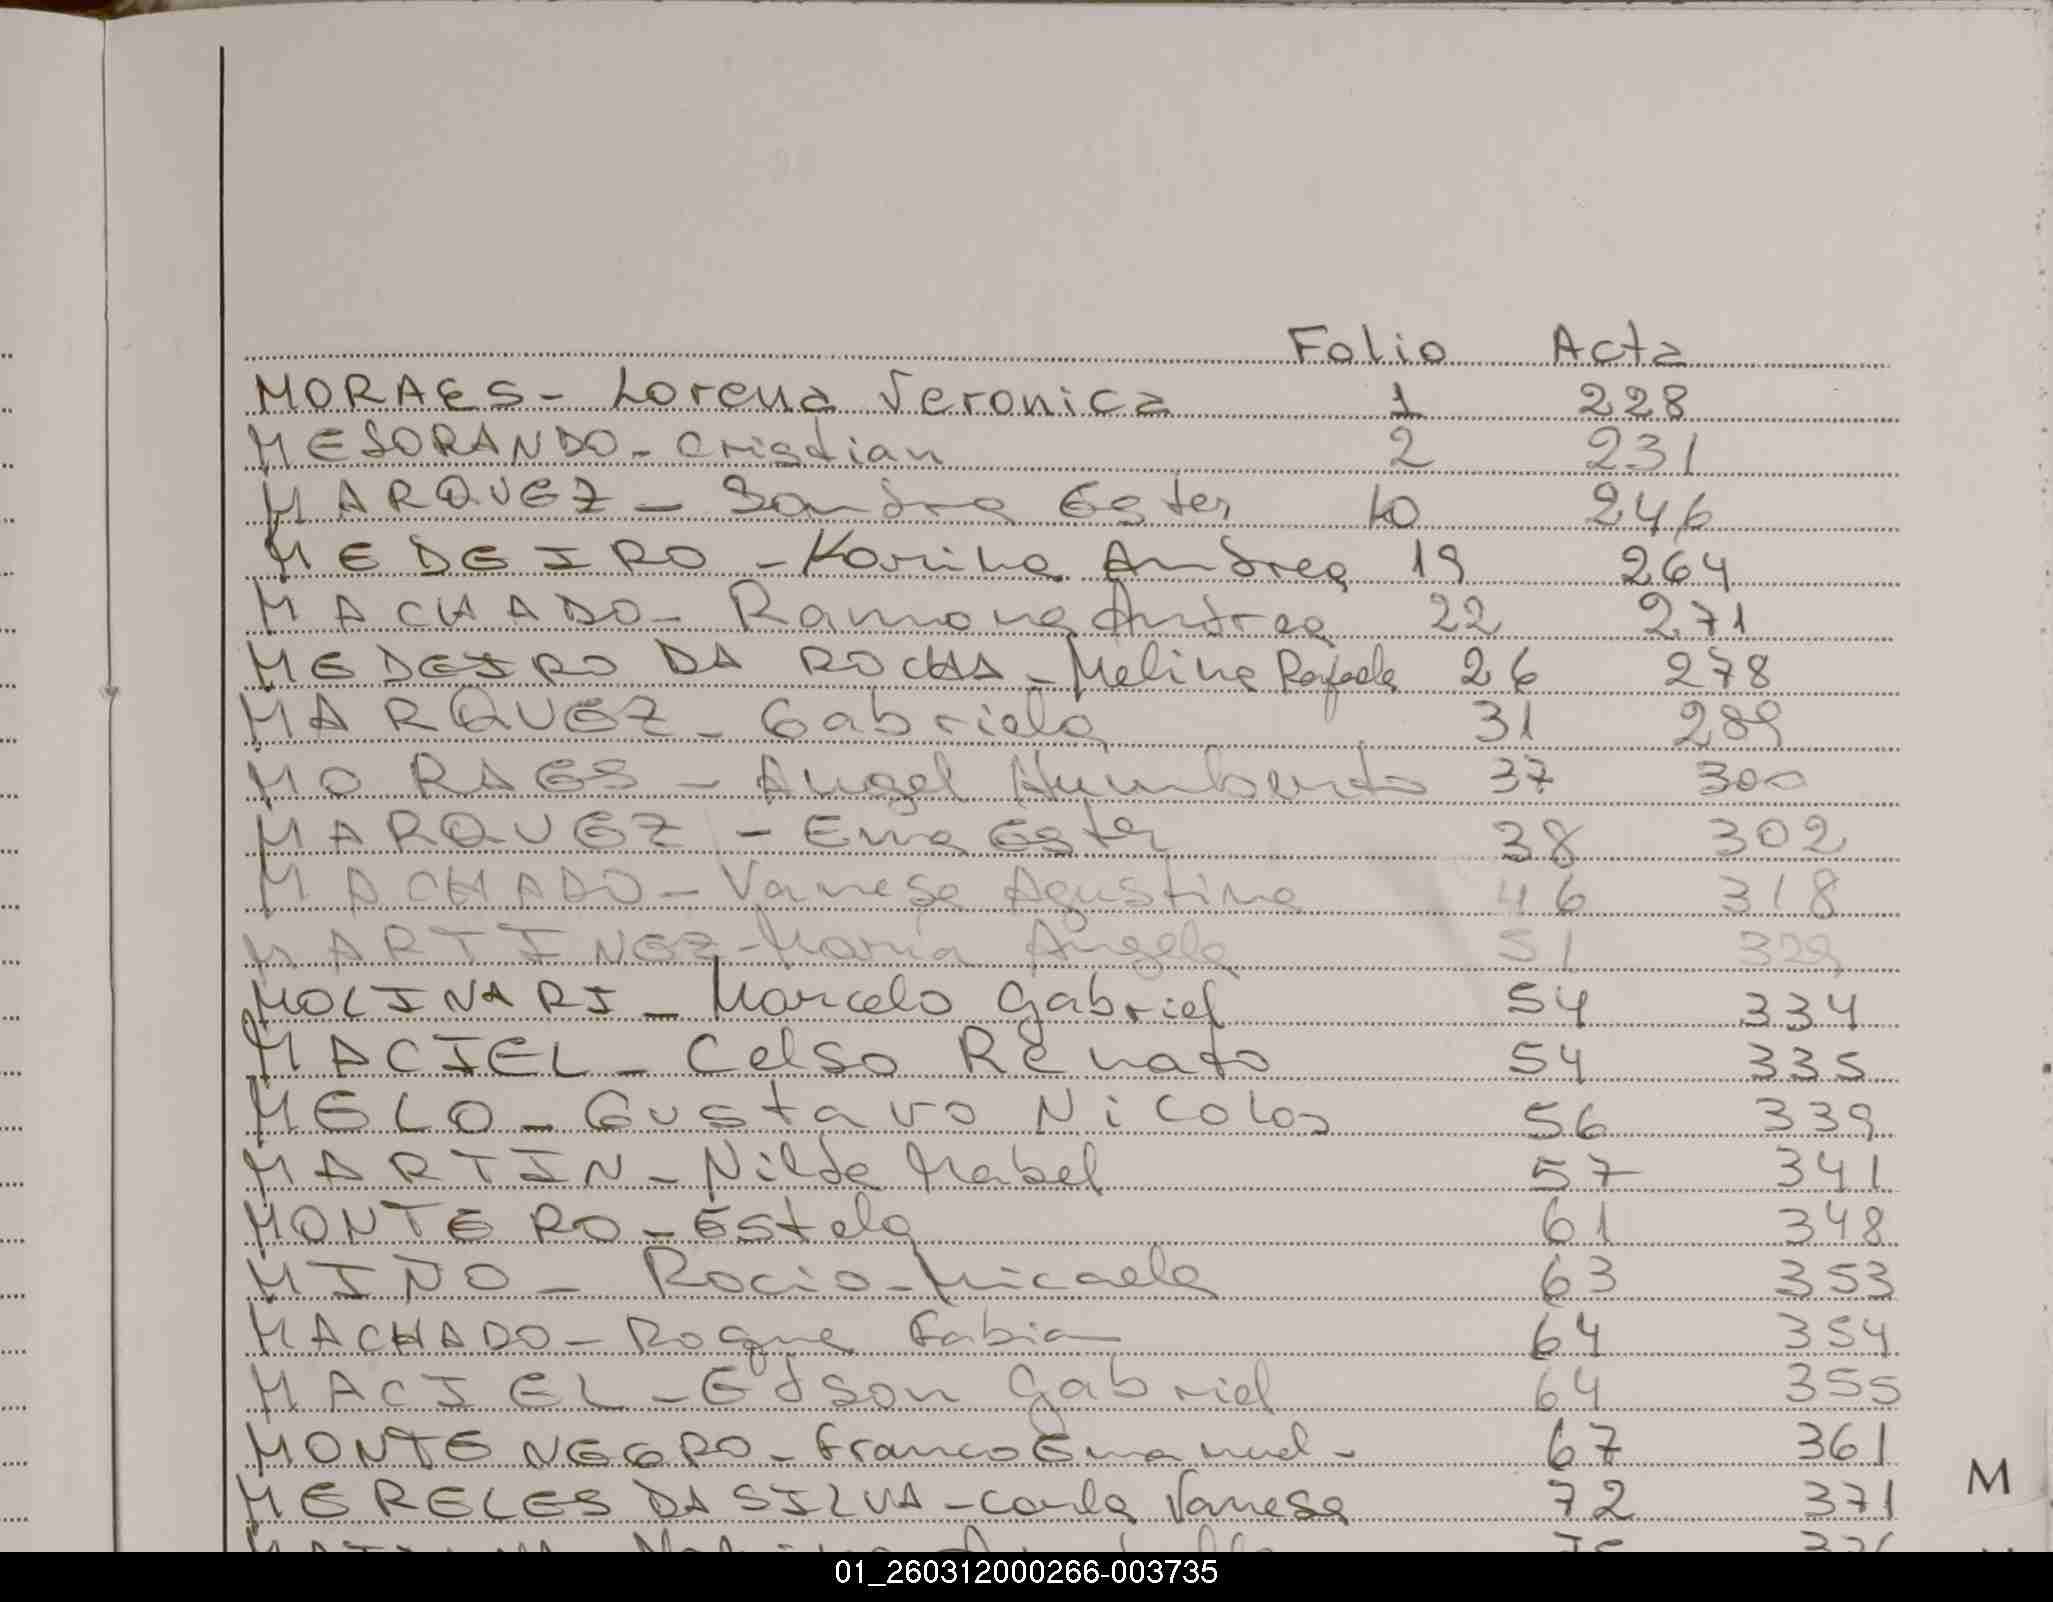 Folio Acta
MORAES - Lorena Veronica 1 228
MESORANDO - Cristian 2 231
MARQUEZ - Sandra Ester 10 246
MEDEIRO - Karina Andrea 19 264
MACHADO - Ramona Andrea 22 271
MEDEIRO DA ROCHA - Melina Rafaela 26 278
MARQUEZ - Gabriela 31 289
MORAES - Angel Humberto 37 300
MARQUEZ - Ema Ester 38 302
MACHADO - Vanesa Agustina 46 318
MARTINEZ - Maria Angela 51 329
MOLINARI - Marcelo Gabriel 54 334
MACIEL - Celso Renato 54 335
MELO - Gustavo Nicolas 56 339
MARTIN - Nilda Mabel 57 341
MONTERO - Estela 61 348
MIÑO - Rocio Micaela 63 353
MACHADO - Roque Fabian 64 354
MACIEL - Edson Gabriel 64 355
MONTENEGRO - Franco Emanuel - 67 361
MERELES DA SILVA - Carla Vanesa 72 371
M
01_260312000266-003735